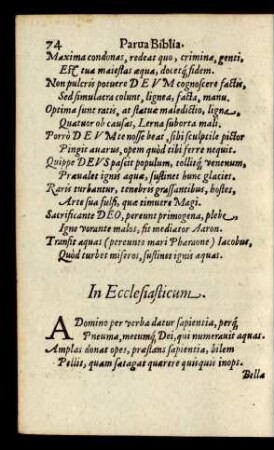 74 Parua Biblia.
Maxima condonas, redeat quo, crimina, genti,
Est tua maiestas æqua, docetq́ fidem.
Non pulcris potuere DEVM cognoscere factis,
Sed simulacra colunt, lignea, facta, manu.
Optima sunt ratis, at statuæ maledictio, ligna,
Quatuor ob causas, Lerna suborta mali.
Porrò DEVM te nosse beat, sibi sculptile pictor
Pingit auarus, opem quòd tibi ferre nequit.
Quippe DEVS pascit populum, tollitq́ venenum,
Præualet ignis aquæ, sustinet hunc glacies.
Raris turbantur, tenebris grassantibus, hostes,
Arte sua fulsi, quæ timuere Magi.
Sacrificante DEO, pereunt primogena, plebe,
Igne vorante malos, fit mediator Aaron.
Transit aquas (pereunte mari Pharaone) Iacobus,
Quòd turbet miseros, sustinet ignis aquas.
In Ecclesiasticum.
A Domino per verba datur sapientia, perq́
Pneuma, metumq́ Dei, qui numerauit aquas.
Amplas donat opes, præstans sapientia, bilem
Pellit, quam satagat quærere quisquis inops.
Bella